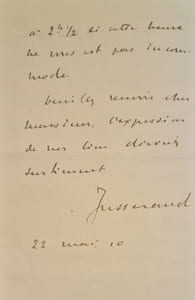 à 2 h 1/2 si cette heure
ne vous est pas incom-
mode.
Veuillez recevoir cher
monsieur, l'expression
de mes biens dévoués
sentiments
Jusserand
22 mai 10